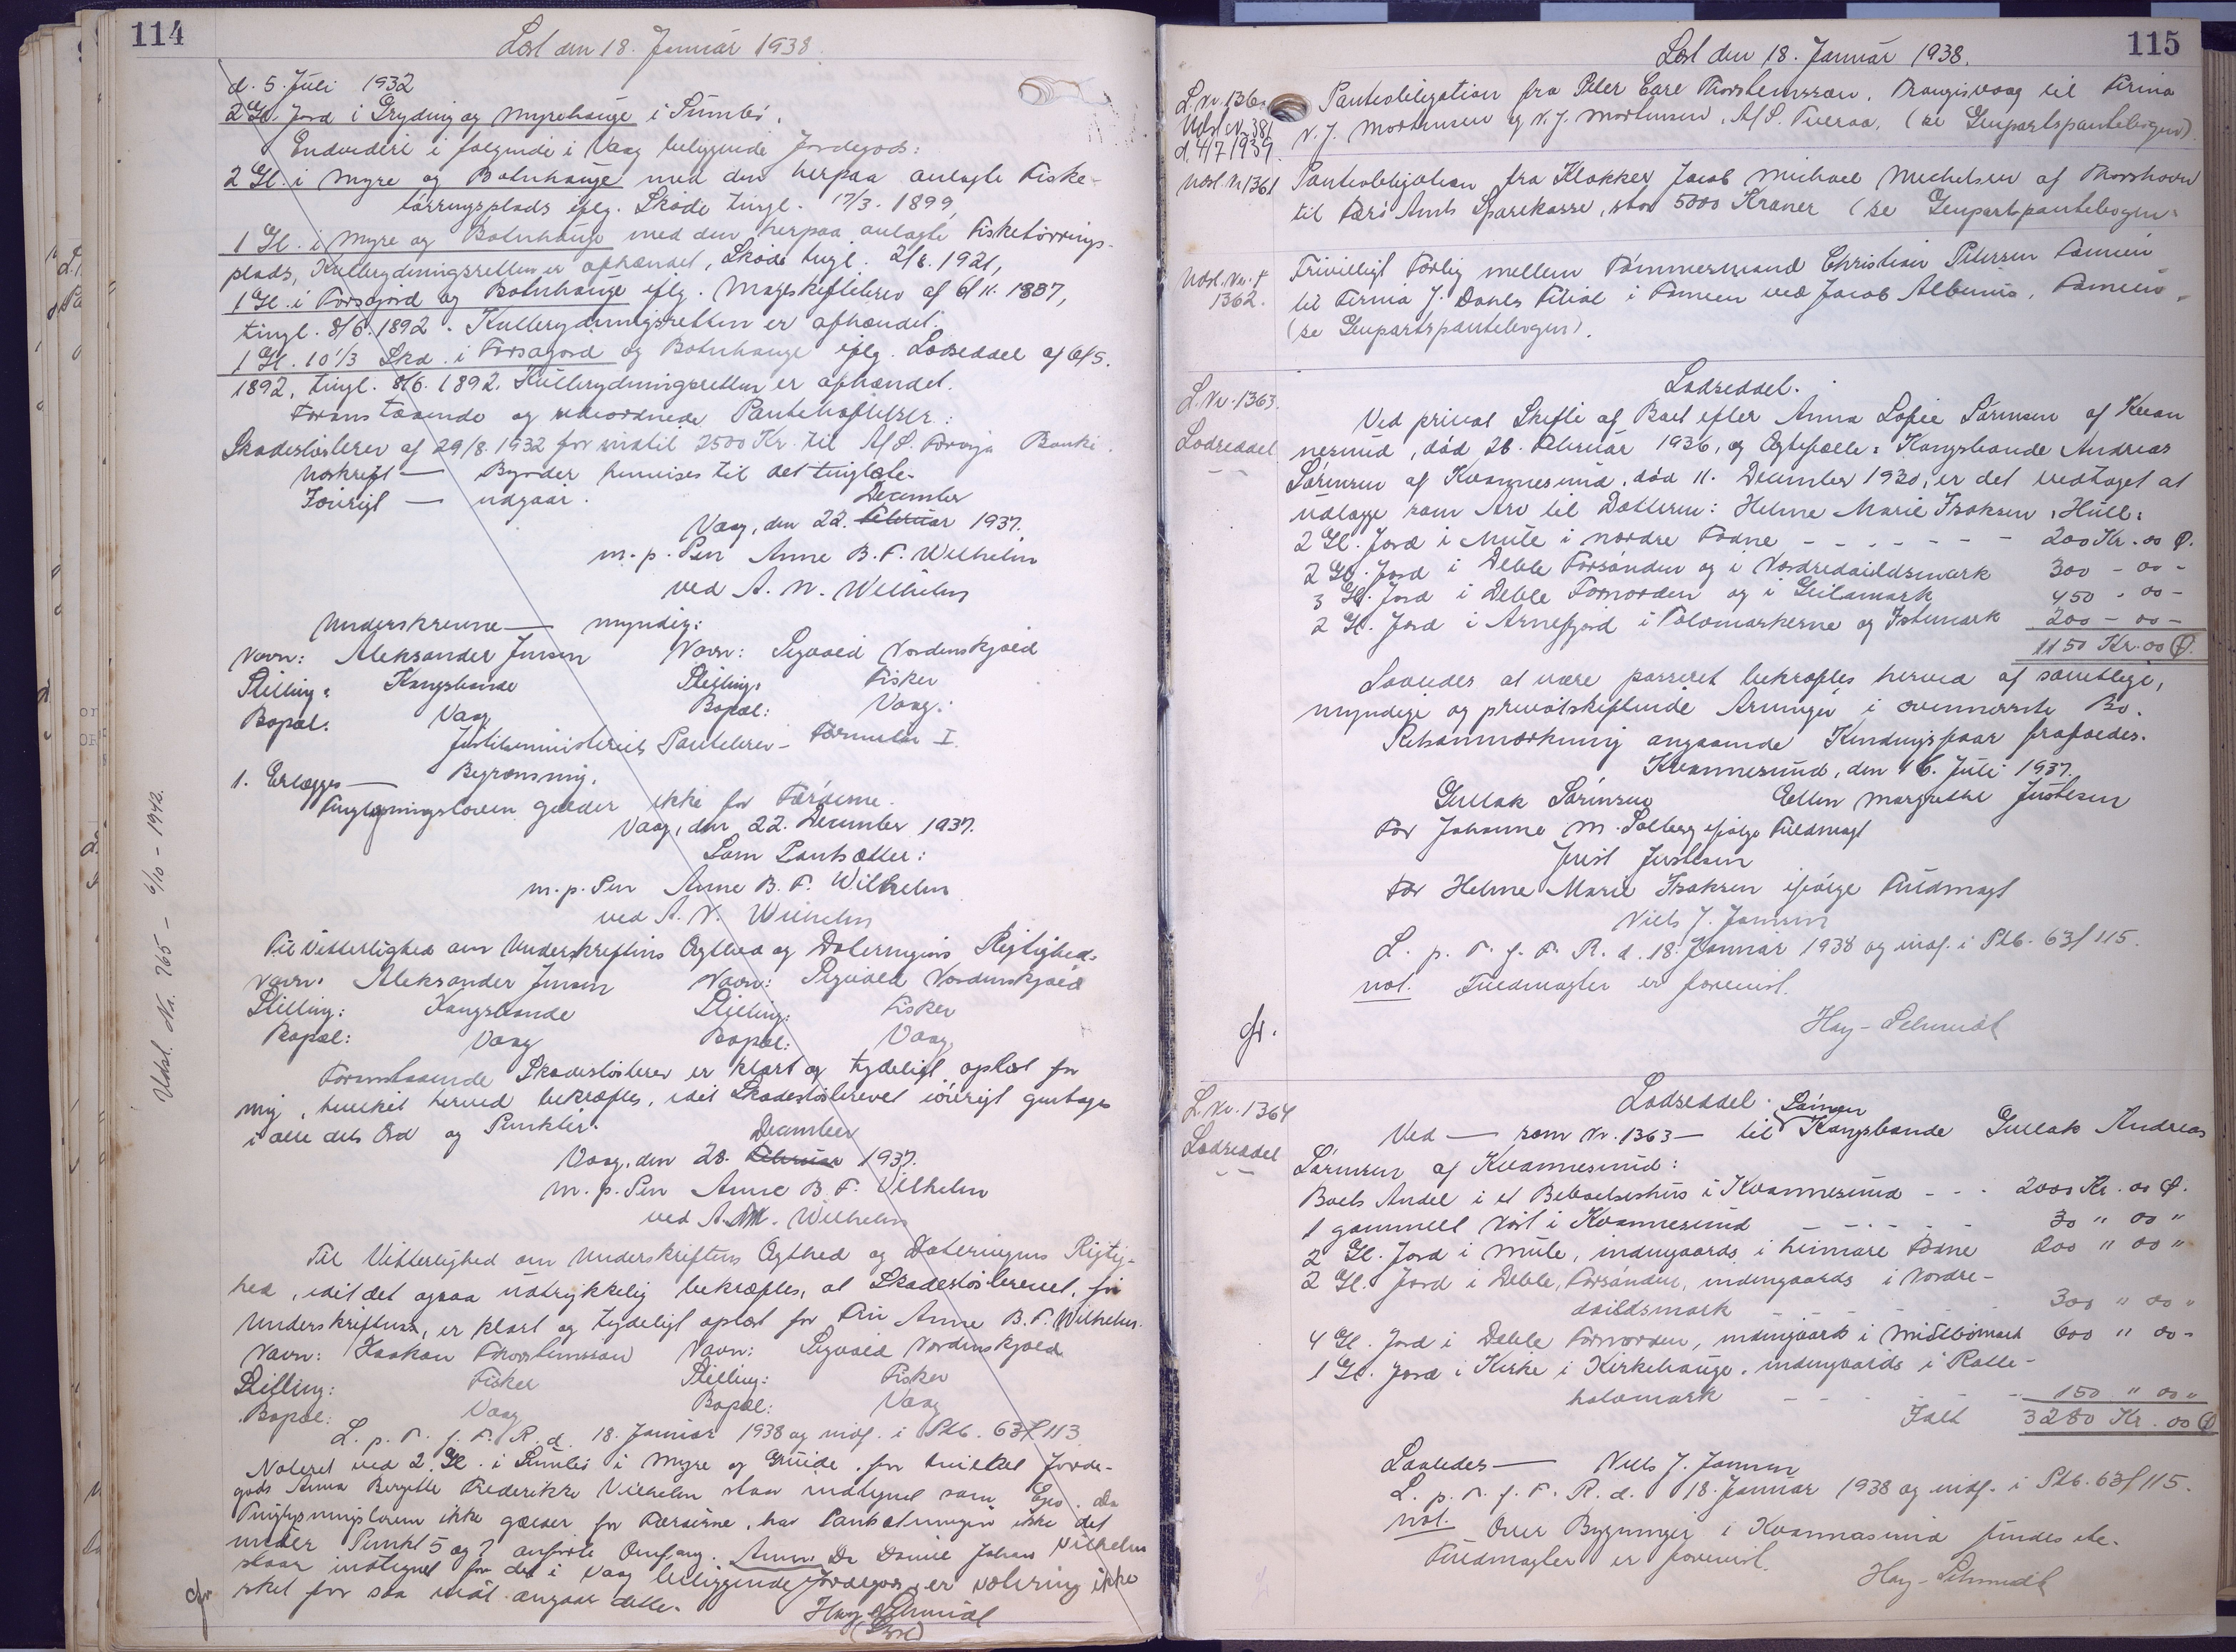 114
Læst den 18. Januar 1938.
d. 5. Juli 1932
2 Gl. Jord i Gryding og Myrehauge i Sumbø.
Endvidere i følgende i Vaag beliggende Jordegods:
2 Gl. i Myre og Botnhauge med den herpaa anlagte Fiske-
tørringsplads iflg. Skøde tingl. 17/3. 1899,
1 Gl. i Myre og Botnhauge med den herpaa anlagte Fisketørrings-
plads, Kulbrydningsretten er afhændet, Skøde tingl. 2/8. 1921,
1 Gl. i Forsagjord og Botnhauge iflg. Mageskiftebrev af 6/11. 1887,
tingl. 8/6. 1892. Kulbrydningsretten er afhændet.
1 Gl. 10 1/3 Skd. i Forsagjord og Botnhauge iflg. Lodseddel af 6/5.
1892, tingl. 8/6. 1892. Kulbrydningsretten er afhændet.
Foranstaaende og sideordnede Pantehæftelser:
Skadesløsbrev af 29/8. 1932 for indtil 2500 Kr. til A/S. Føroya Banki.
Udskrift — Byrder henvises til det tinglæste.
Iøvrigt — udgaar.
December
Vaag, den 22. Februar 1937.
m. p. Pen Anne B. F. Wilhelm
ved A. N. Wilhelm
Underskrevne — myndig:
Navn: Aleksander Jensen Navn: Sigvald Nordenskjold
Stilling: Kongsbonde Stilling: Fisker
Bopæl: Vaag Bopæl: Vaag.
Justitsministeriets Pantebrev — Formular I.
1. Erlægges — Begrænsning.
Tinglysningsloven gælder ikke for Færøerne.
Vaag, den 22. December 1937.
Som Pantsætter:
m. p. Pen Anne B. F. Wilhelm
ved A. N. Wilhelm
Til Vitterlighed om Underskriftens Ægthed og Dateringens Rigtighed.
Navn: Aleksander Jensen Navn: Sigvald Nordenskjold
Stilling: Kongsbonde Stilling: Fisker
Bopæl: Vaag Bopæl: Vaag
Foranstaaende Skadesløsbrev er klart og tydeligt oplæst for
mig, hvilket herved bekræftes, idet Skadesløsbrevet iøvrigt gentages
i alle dets Ord og Punkter.
December
Vaag, den 28. Februar 1937.
m. p. Pen Anne B. F. Vilhelm
ved A. M. Wilhelm
Til Vitterlighed om Underskriftens Ægthed og Dateringens Rigtig-
hed, idet det ogsaa udtrykkelig bekræftes, at Skadesløsbrevet, før
Underskriften, er klart og tydeligt oplæst for Fru Anne B. F. Wilhelm.
Navn: Haakon Thorsteinsson Navn: Sigvald Nordenskjold
Stilling: Fisker Stilling: Fisker
Bopæl: Vaag Bopæl: Vaag
L. p. T. f. F. R. d. 18. Januar 1938 og indf. i Ptb. 63 f 113
Noteret ved 2 Gl. i Sumbø i Myre og Gruide, for hvilket Jorde-
gods Anna Bergitte Frederikke Vilhelm staar indtegnet som Ejer. Da
Tinglysningsloven ikke gælder for Færøerne, har Pantsætningen ikke det
under Punkt 5 og 7 anførte Omfang. Anm. Da Daniel Johan Vilhelm
staar indtegnet for det i Vaag beliggende Jordegods, er notering ikke
sket for saa vidt angaar dette.
Hay-Schmidt
Udsl. Nr. 765 — 6/10 - 1942.
115
Læst den 18. Januar 1938.
L. Nr. 1360
Udsl. Nr. 381
d. 4/7 1939.
Panteobligation fra Peter Carl Thorsteinsson, Trangisvaag til Firma
N. J. Mortensen og N. J. Mortensen, A/S. Tveraa, (se Genpartspantebogen).
Udsl. Nr. 1361
Panteobligation fra Klokker Jacob Michael Michelsen af Thorshavn
til Færø Amts Sparekasse, stor 5000 Kroner (se Genpartspantebogen.
1362.
Frivilligt Forlig mellem Tømmermand Christian Petersen Famien
til Firma J. Dahls Filial i Famien ved Jacob Albinus, Famien.
(se Genpartspantebogen).
L. Nr. 1363.
Lodseddel
Lodseddel.
Ved privat Skifte af Boet efter Anna Sofie Sørensen af Kvan
nesund, død 26. Februar 1936, og Ægtefælle: Kongsbonde Andreas
Sørensen af Kvannesund, død 11. December 1920, er det vedtaget at
udlægge som Arv til Datteren: Helene Marie Isaksen, Hull:
2 Gl. Jord i Mule i nordre Tødne - - - - - - - 200 Kr. 00 Ø.
2 Gl. Jord i Deble Forsønden og i Nordredaildsmark 300 - 00 -
3 Gl. Jord i Deble Fornorden og i Geilamark 450 - 00 -
2 Gl. Jord i Arnefjord i Tolvmarkerne og Istemark 200 - 00 -
1150 Kr. 00 Ø.
Saaledes at være passeret bekræftes herved af samtlige,
myndige og privatskiftende Arvinger i ovennævnte Bo.
Retsanmærkning angaaende Kendingsfaar frafaldes.
Kvannesund, den 16. Juli 1937.
Gullak Sørensen Ellen Margrethe Justesen
For Johanne M. Solberg ifølge Fuldmagt
Just Justesen
For Helene Marie Isaksen ifølge Fuldmagt
Niels J. Jensen
L. p. T. f. F. R. d. 18. Januar 1938 og indf. i Ptb. 63 f 115.
not. Fuldmagter er forevist.
Hay-Schmidt
L. Nr. 1364
Lodseddel
Lodseddel.
Sønnen
Ved — som Nr. 1363 — til Kongsbonde Gullak Andreas
Sørensen af Kvannesund:
Boets Andel i et Beboelseshus i Kvannesund - - - 2000 Kr. 00 Ø.
1 gammelt Nøst i Kvannesund - - - - - 30 " 00 "
2 Gl. Jord i Mule, indengaards i heimare Tødne 200 " 00 "
2 Gl. Jord i Deble, Forsønden, indengaards i Nordre-
daildsmark - - - - - 300 " 00 "
4 Gl. Jord i Deble Fornorden, indengaards i Midtbømark 600 " 00 -
1 Gl. Jord i Kirke i Kirkehauge, indengaards i Ralle-
holamark - - - - - 150 " 00 "
Ialt 3280 Kr. 00 Ø
Saaledes — Niels J. Jensen
L. p. T. f. F. R. d. 18. Januar 1938 og indf. i Ptb. 63 f 115.
not. Over Bygninger i Kvannasund findes ete.
Fuldmagter er forevist.
Hay-Schmidt